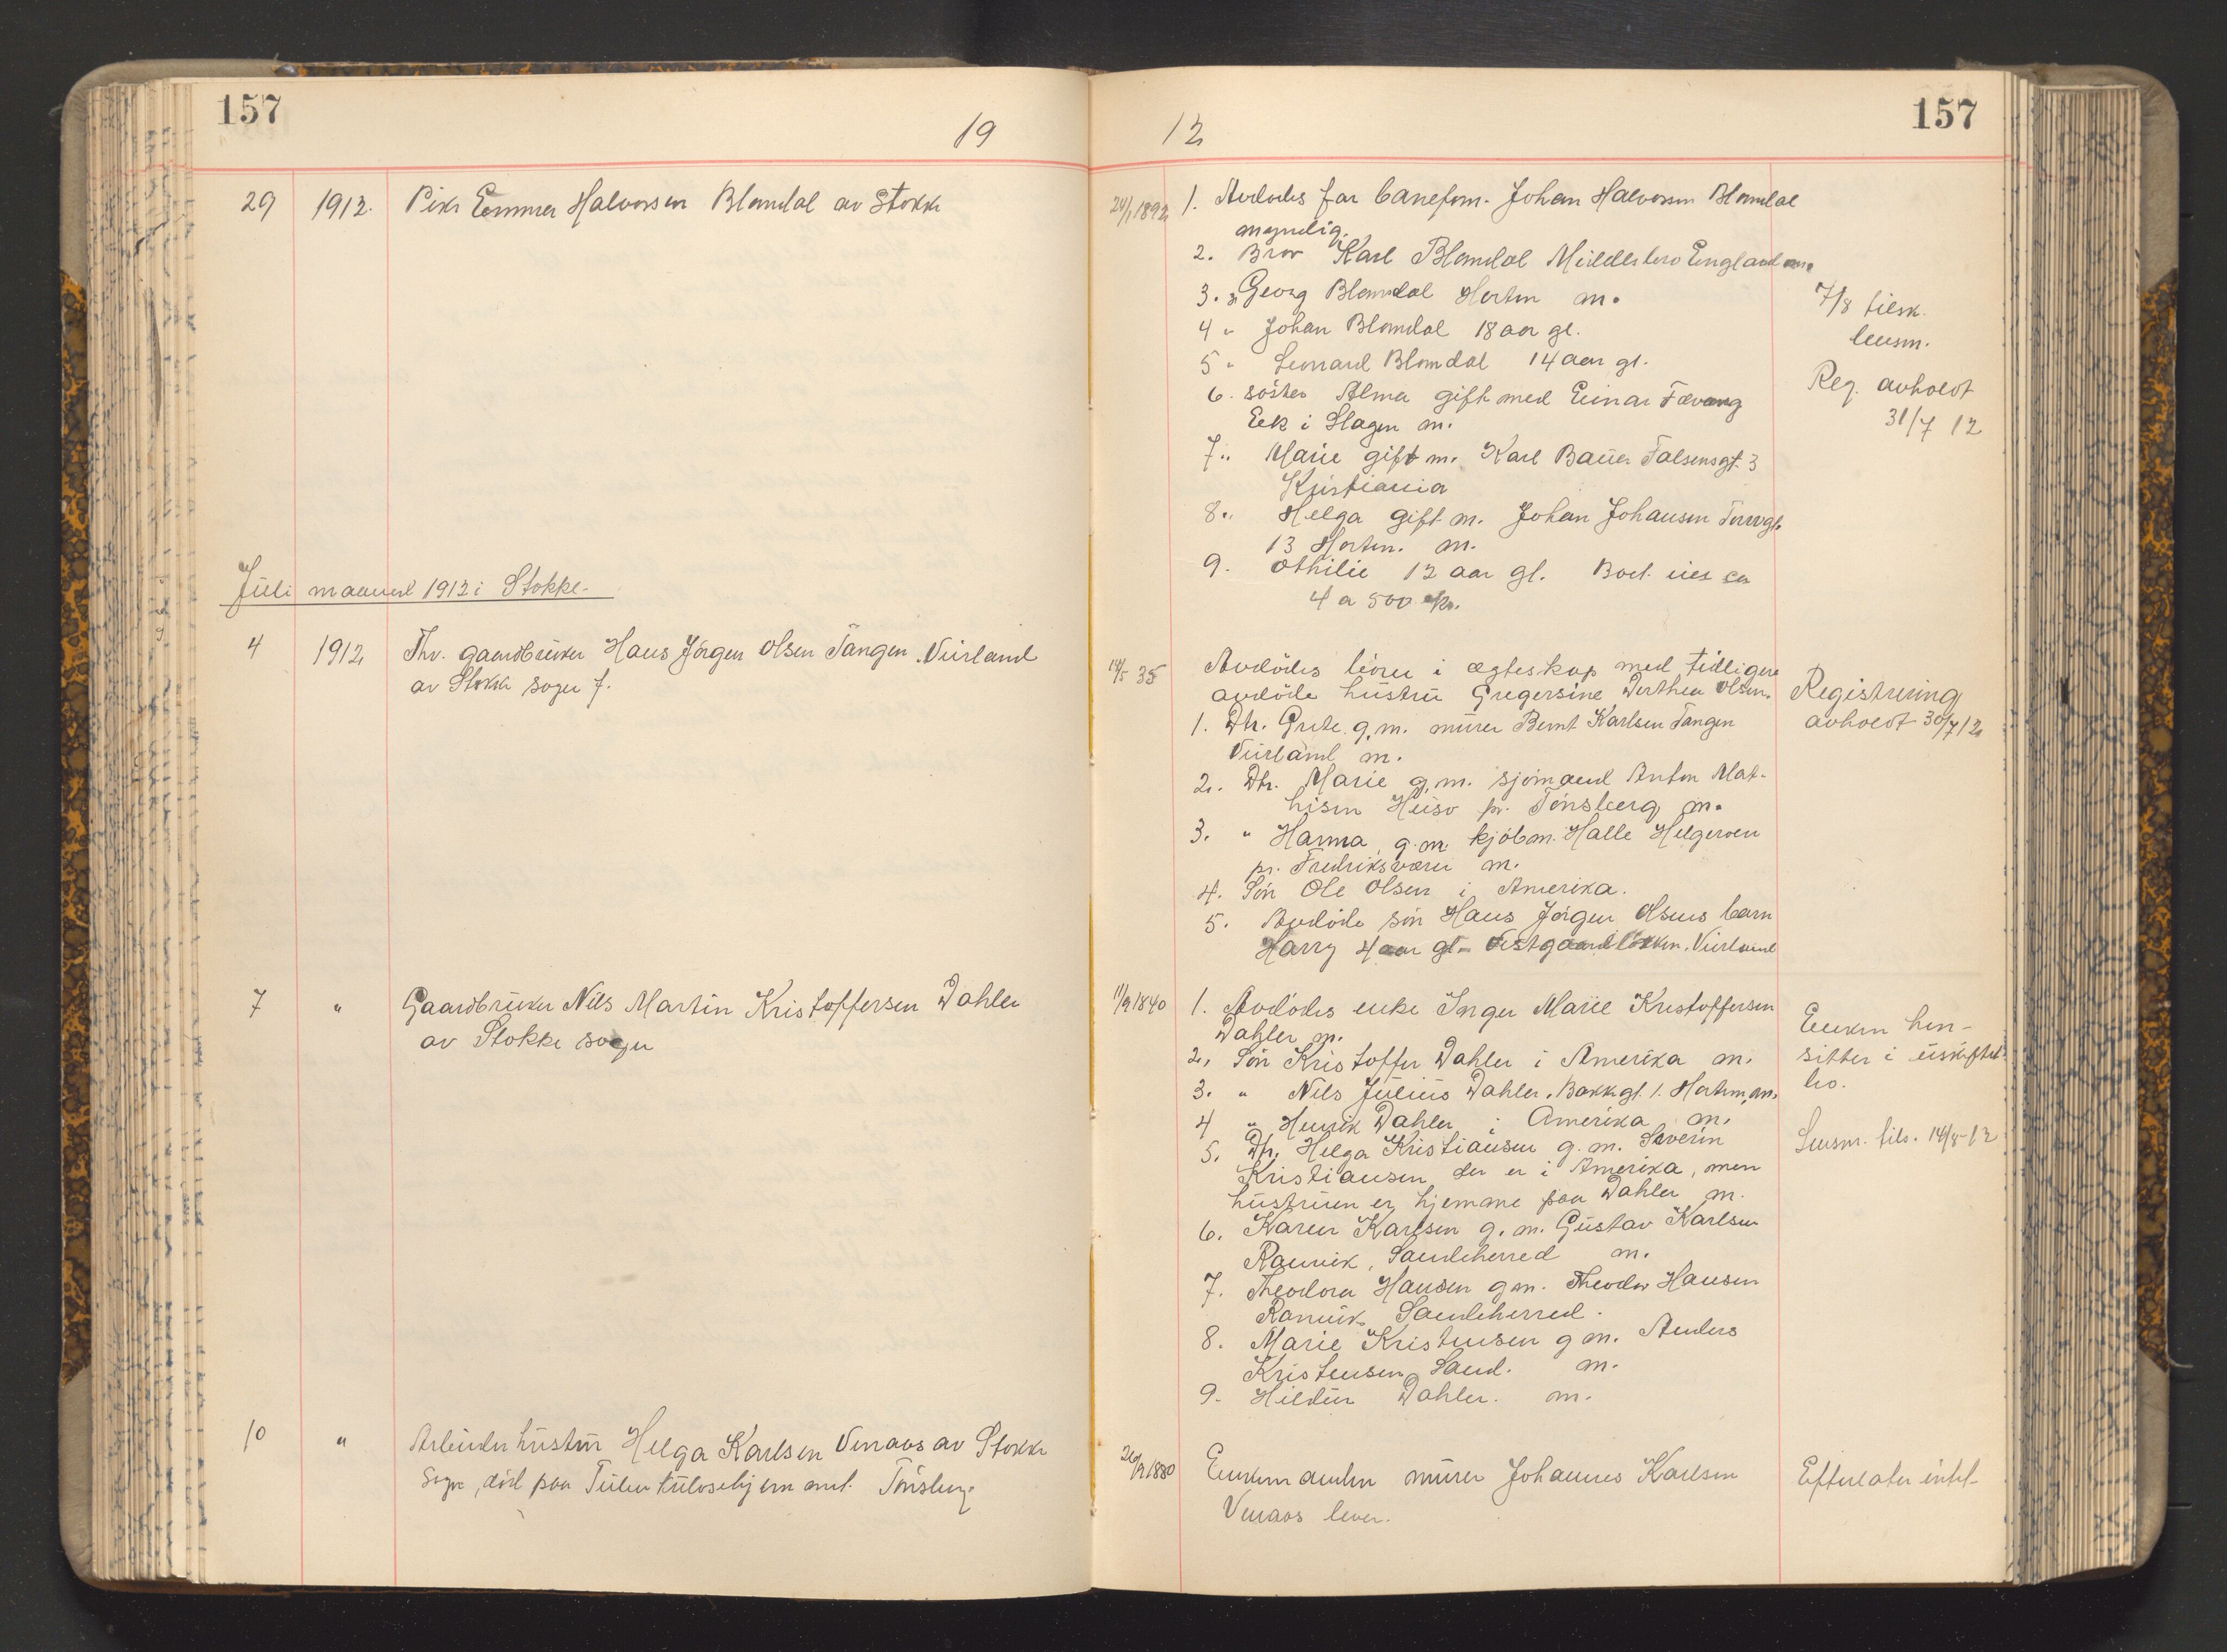 157
19
29 1912. Pike Emma Halvorsen Blomdal av Stokke
Juli maaned 1912 i Stokke.
4 1912 Fhv. gaardbruker Hans Jörgen Olsen Tangen Vivland
av Stokke sogn f.
7 " Gaardbruker Nils Martin Kristoffersen Dahler
av Stokke sogn
10 " Arbeiderhustru Helga Karlsen Venaas av Stokke
Sogn, död paa Tuberkulosehjem met. Tönsberg
157
12
24/1 1892 1. Avdödes far banefom. Johan Halvorsen Blomdal
myndig.
2. Bror Karl Blomdal Middlesbro England m.
3. " Georg Blomdal Horten m.
4 " Johan Blomdal 18 aar gl.
5 " Leonard Blomdal 14 aar gl.
6. söster Alma gift med Einar Fævang
Eek i Slagen m.
7 " Marie gift m. Karl Bauer Falsensgt. 3
Kristiania
8 " Helga gift m. Johan Johansen Torvgt.
13 Horten. m.
9. Othilie 12 aar gl. Boet eies ca
4 a 500 kr.
7/8 tilsk.
lensm.
Reg. avholdt
31/7 12
14/5 35 Avdödes börn i ægteskap med tidligere
avdöde hustru Gregersine Dorthea Olsen.
1. Dtr. Grete g.m. murer Bernt Karlsen Tangen
Vivland m.
2. Dtr. Marie g.m. sjömand Anton Mat-
hisen Husö pr. Tönsberg m.
3. " Hanna g.m. kjöbm. Halle Helgeroen
pr. Fredriksværn m.
4. Sön Ole Olsen i Amerika.
5. Avdöde sön Hans Jörgen Olsens barn
Harry 4 aar gl. Vestgaardlökken, Vivland
Registrering
avholdt 30/7 12
11/9 1840 1. Avdödes enke Inger Marie Kristoffersen
Dahler m.
2. Sön Kristoffer Dahler i Amerika m.
3. " Nils Julius Dahler, Bakkegt. 1. Horten, m.
4 " Henrik Dahler i Amerika m.
5. Dtr. Helga Kristiansen g.m. Severin
Kristiansen der er i Amerika, men
hustruen er hjemme paa Dahler m.
6. Karen Karlsen g.m. Gustav Karlsen
Ranvik, Sandeherred m.
7. Theodora Hansen g m. Theodor Hansen
Ranvik Sandeherred.
8. Marie Kristensen g m. Anders
Kristensen Sand. m.
9. Hildur Dahler. m.
Enken hen-
sitter i uskiftet
bo.
Lensm. tils. 14/8-12
26/9 1880 Enkemanden murer Johannes Karlsen
Venaas lever.
Efterlater intet